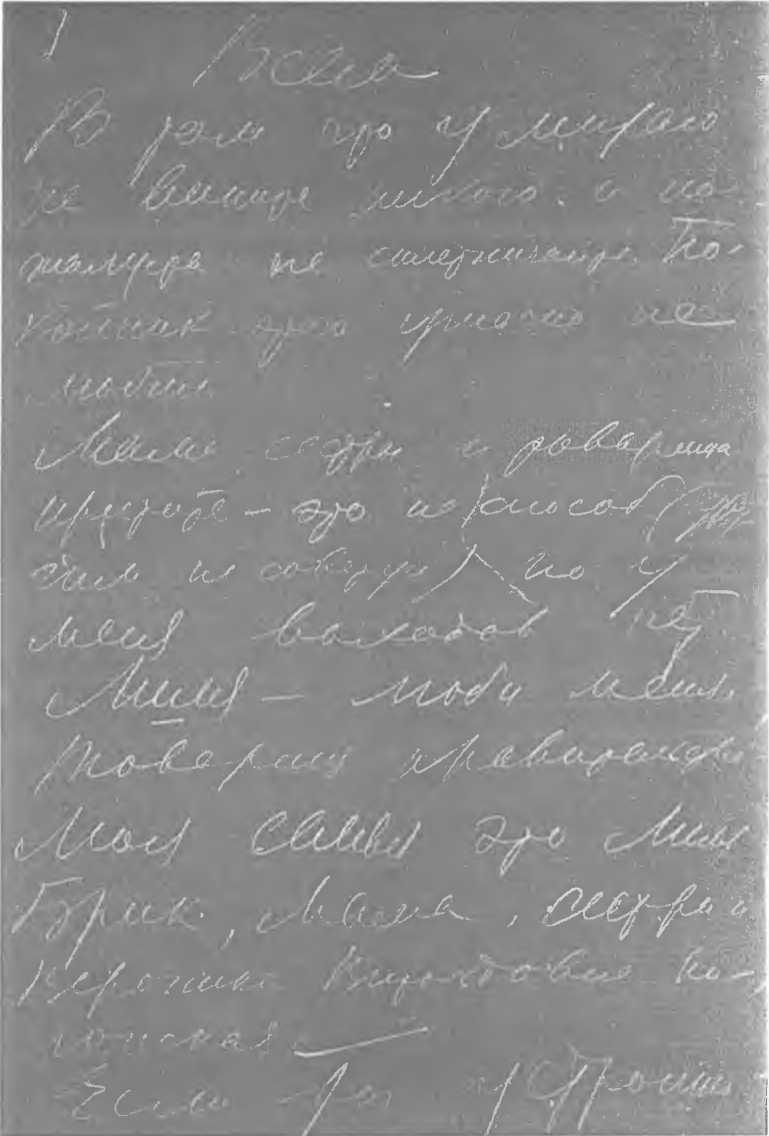 1
Всем
В том что умираю
не вините никого и по
жалуйста не сплетничайте. По-
койник этого ужасно не
любил.
Мама, сестры и товарищи
простите – это не способ (дру
гим не советую) но у
меня выходов нет.
Лиля – люби меня.
Товарищ правительство
моя семья это Лиля
Брик, мама, сестры и
Вероника Витольдовна По-
лонская.
Если ты устроишь